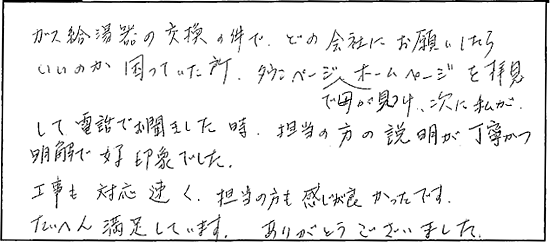 ガス給湯器の交換の件で、どの会社にお願いしたら
いいのか困っていた所、タウンページ、ホームページを拝見
で母が見つけ、次に私が、
して電話でお聞きした時、担当の方の説明が丁寧かつ
明解で好印象でした。
工事も対応速く、担当の方も感じが良かったです。
たいへん満足しています。ありがとうございました。